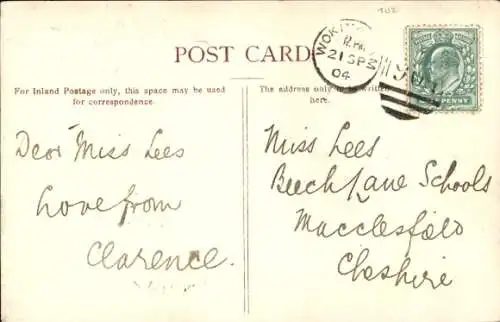 POST CARD
For Inland Postage only, this space may be used
for correspondence.
The address only to be written
here.
21 SP
04
PENNY
Dear Miss Lees
love from
Clarence.
Miss Lees
Beech Lane Schools
Macclesfield
Cheshire